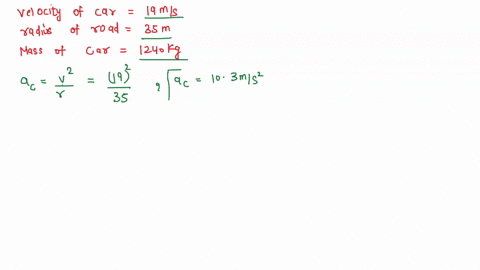 velocity of car = 19 m/s
radius of road = 35 m
Mass of car = 1240 kg
a_c = v²/r = (19)²/35 , a_c = 10.3 m/s²